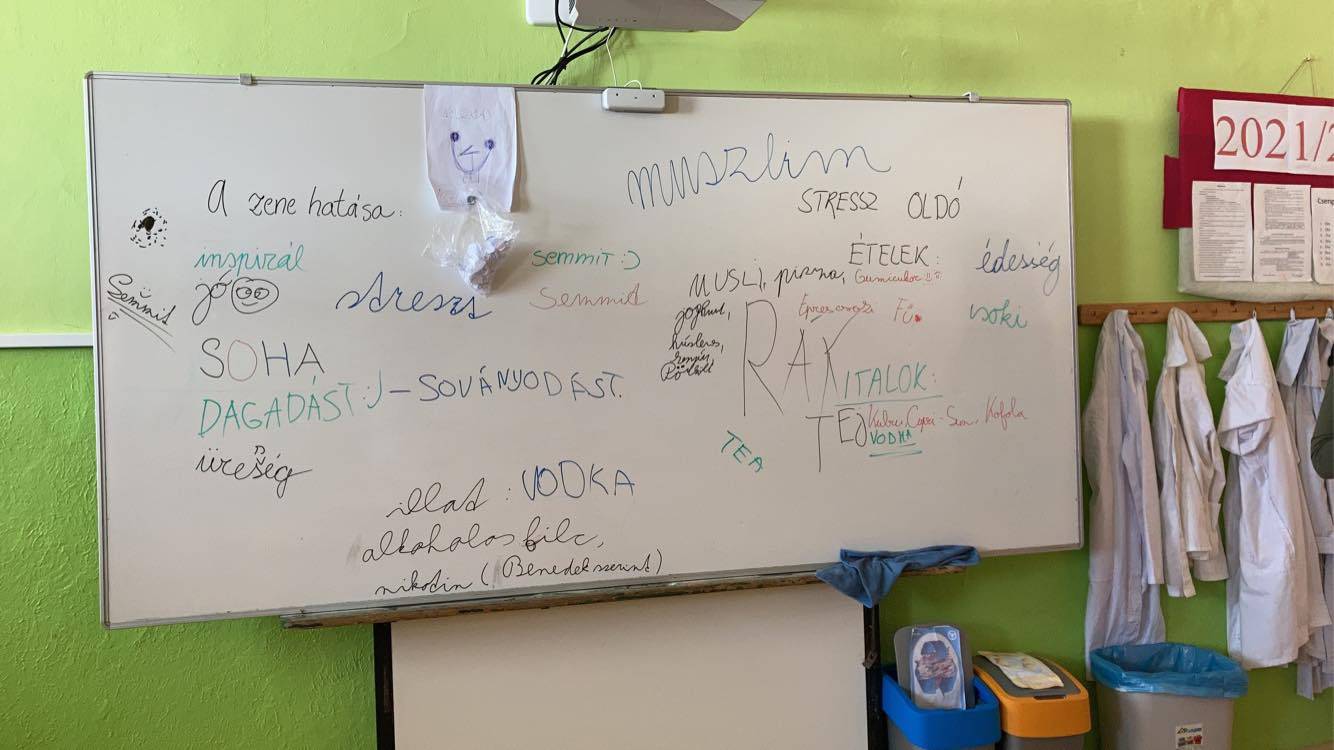 muszlim
A zene hatása:
inspirál
jó
Semmit
stressz
semmit :)
Semmit
SOHA
DAGADÁST :) – SOVÁNYODÁST.
üresség
illat : VODKA
alkoholos filc,
nikotin ( Benedek szerint )
STRESSZ OLDÓ
ÉTELEK:
édesség
MUSLI, pizza, Gumicukor
joghurt,
Epres
FŰ
csoki
húsleves,
RÁK
ITALOK:
TEJ
Kubu, Capri-Sun, Kofola
VODKA
TEA
2021/2